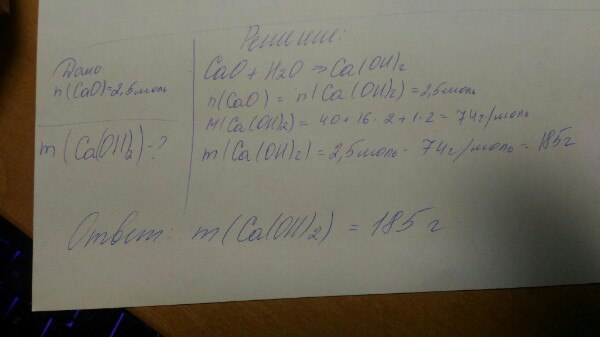 Решение:
Дано
n(CaO)=2,5моль
m(Ca(OH)2)-?
CaO + H2O → Ca(OH)2
n(CaO) = n(Ca(OH)2) = 2,5моль
M(Ca(OH)2) = 40+16·2+1·2 = 74г/моль
m(Ca(OH)2) = 2,5моль · 74г/моль = 185г
Ответ: m(Ca(OH)2) = 185г